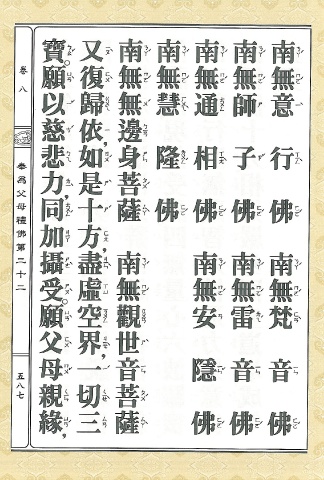 南無意行佛　南無梵音佛
南無師子佛　南無雷音佛
南無通相佛　南無安隱佛
南無慧隆佛
南無無邊身菩薩　南無觀世音菩薩
又復歸依，如是十方，盡虛空界，一切三
寶。願以慈悲力，同加攝受。願父母親緣，
卷八　奉為父母禮佛第二十二　五八七